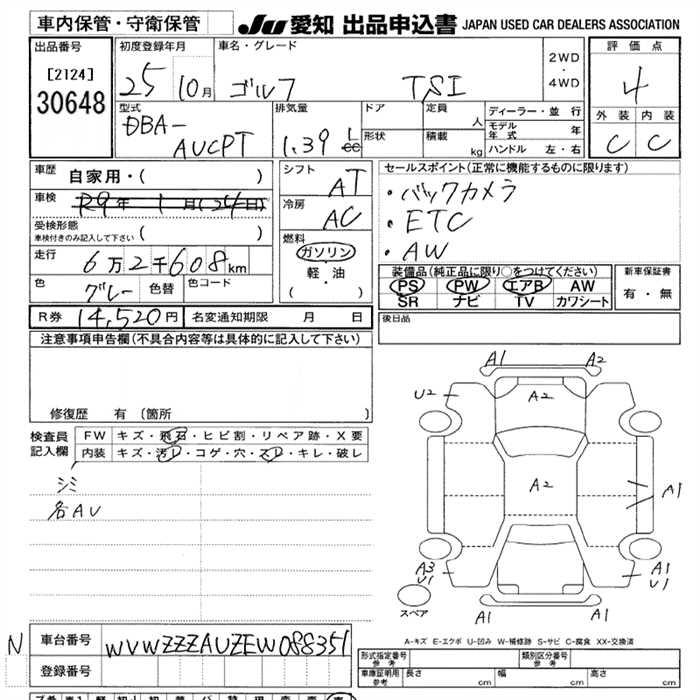 車内保管・守衛保管
JU 愛知 出品申込書 JAPAN USED CAR DEALERS ASSOCIATION
出品番号
[2124]
30648
初度登録年月
25 10月
車名・グレード
ゴルフ TSI
2WD
・
4WD
評価点
4
外装 内装
C C
型式
DBA-
AUCPT
排気量
1.39 L
cc
ドア
形状
定員
人
積載
kg
ディーラー・並行
モデル年式 年
ハンドル 左・右
車歴 自家用・( )
車検 R9年 1月(24日)
受検形態
車検付きのみ記入して下さい ( )
走行 6万2千608km
色 グレー 色替 色コード
シフト
AT
冷房
AC
燃料
ガソリン
軽・油
( ・ )
セールスポイント(正常に機能するものに限ります)
・バックカメラ
・ETC
・AW
装備品(純正品に限り○をつけてください)
PS PW エアB AW
SR ナビ TV カワシート
新車保証書
有・無
R券 14,520円 名変通知期限 月 日
後日品
注意事項申告欄(不具合内容等は具体的に記入して下さい)
修復歴 有 (箇所 )
検査員
記入欄
FW キズ・飛石・ヒビ割・リペア跡・X要
内装 キズ・汚レ・コゲ・穴・スレ・キレ・破レ
シミ
各AU
A1 A2
U2 A2
A2
A1
A3
U1
A1
U1
A1 A1
スペア
A-キズ E-エクボ U-凹み W-補修跡 S-サビ C-腐食 XX-交換済
N 車台番号 WVWZZZAUZEW088351
登録番号
型式指定番号
参考
類別区分番号
参考
車庫証明用
参考
長さ cm 幅 cm 高さ cm